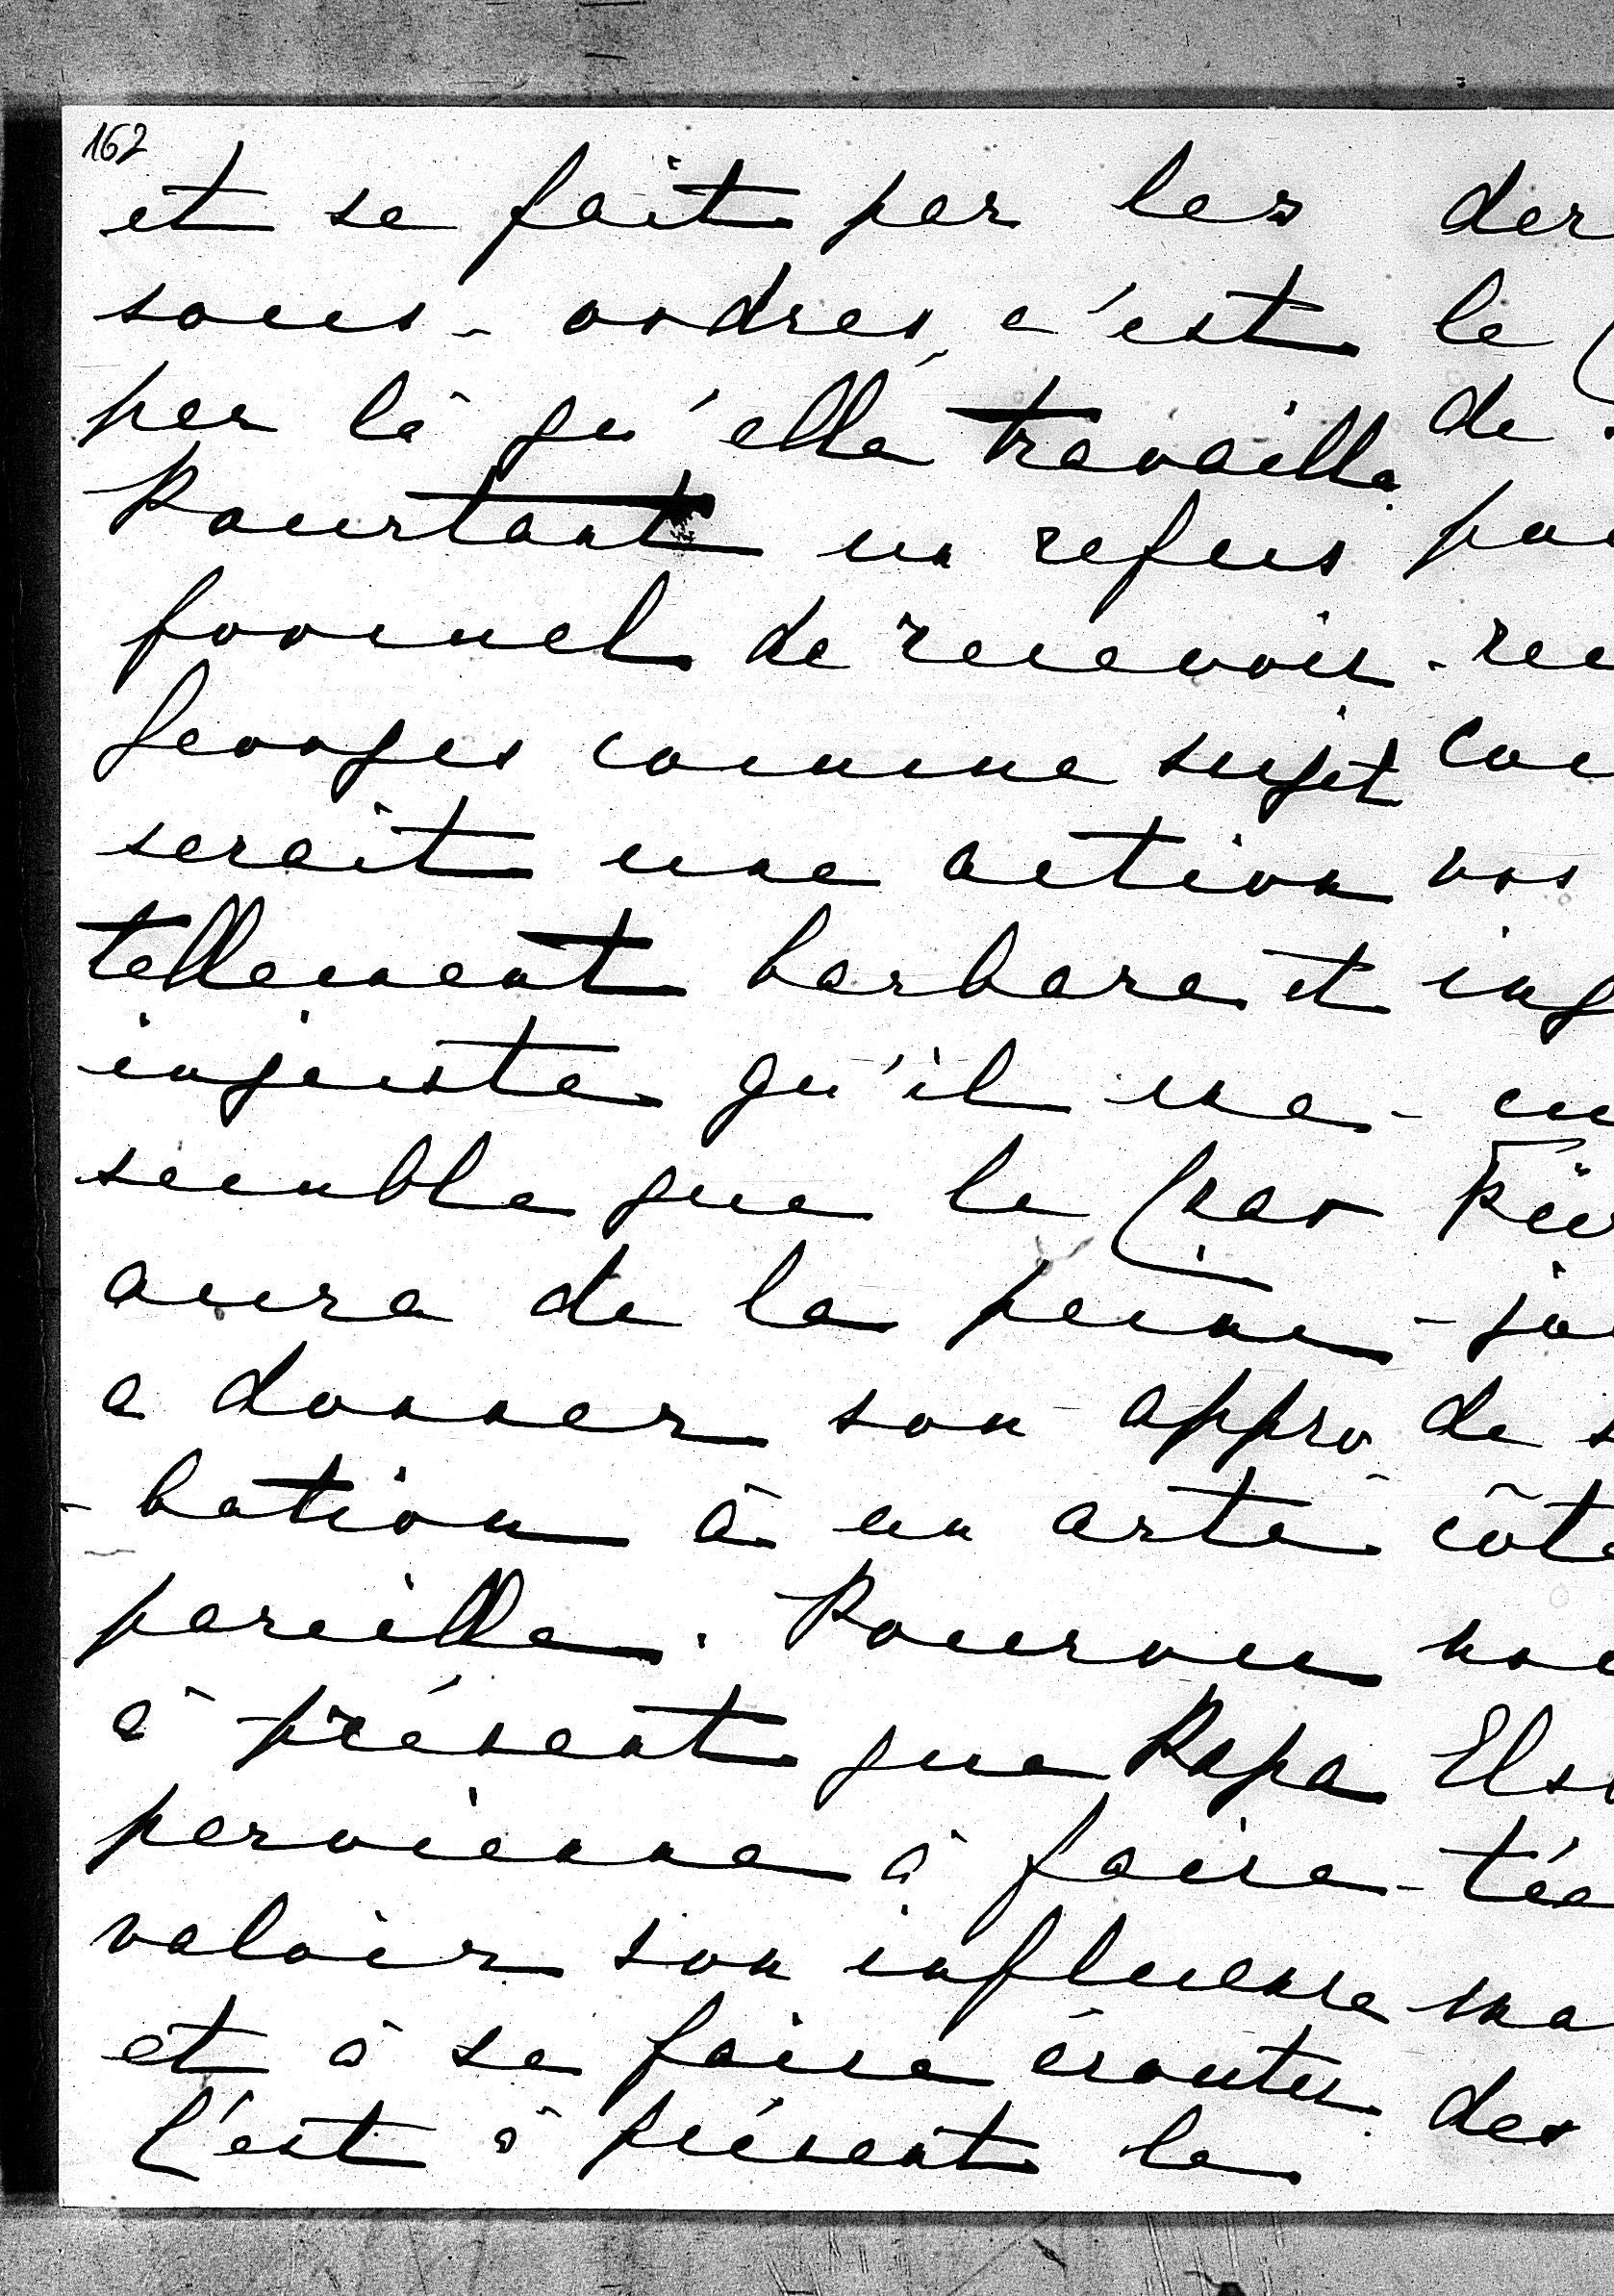 162
et se fait par les
sous-ordres, c'est
par là qu'elle travaille
Pourtant un refus
formel de recevoir
Georges comme sujet
serait une action
tellement barbare et
injuste qu'il me
semble que le Czar
aura de la peine
a donner son appro
-bation à un acte
pareille. Pourvu
à présent que Papa
parvienne à faire
valoir son influence
et à se faire écouter.
C'est à présent le
der
le
de
pou
rec
Cou
nos
ing
en
Pür
jou
de s
côte
nou
Elso
téa
ma
des